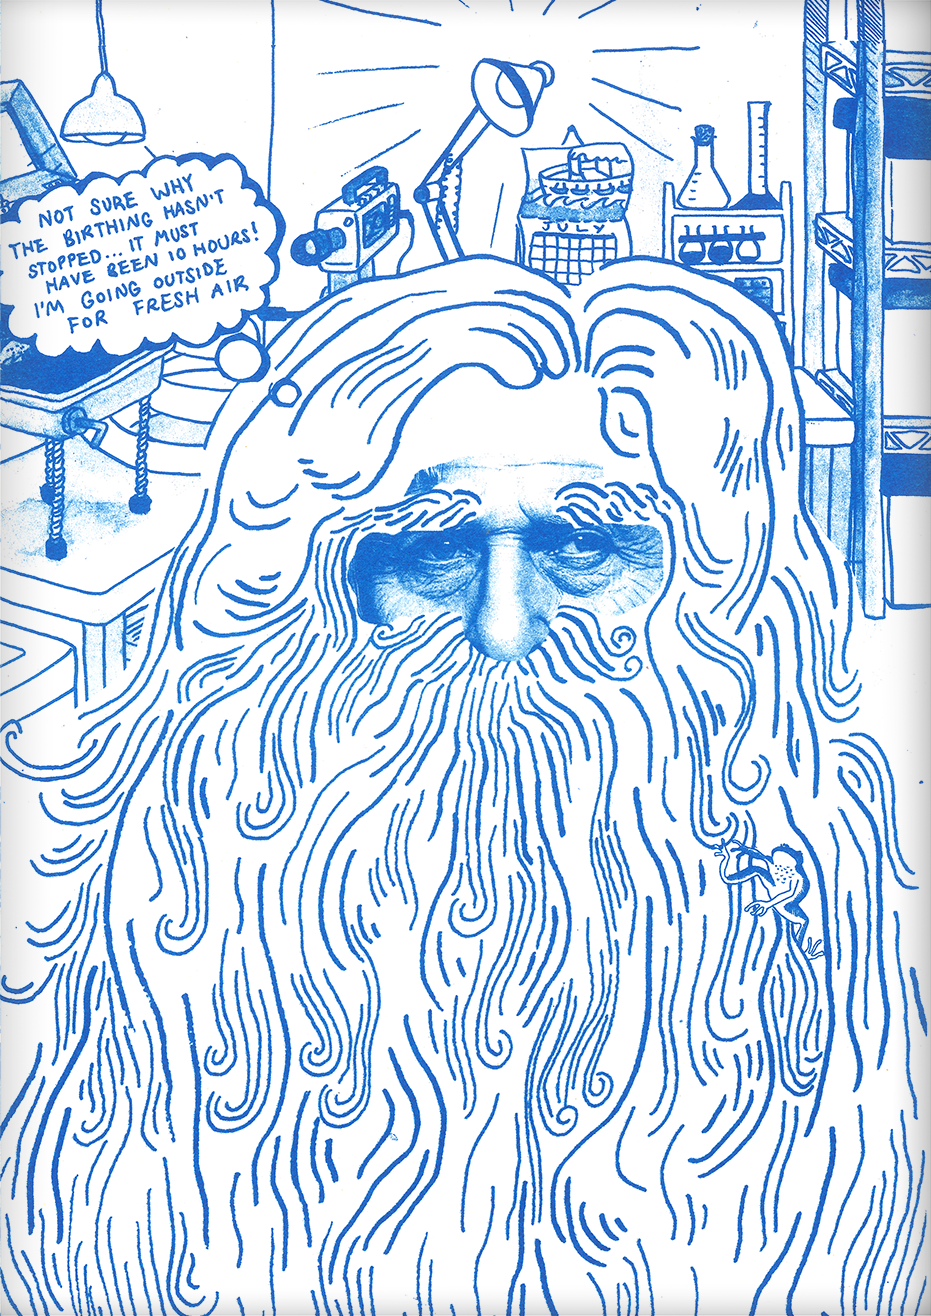 NOT SURE WHY
THE BIRTHING HASN'T
STOPPED... IT MUST
HAVE BEEN 10 HOURS!
I'M GOING OUTSIDE
FOR FRESH AIR
JULY